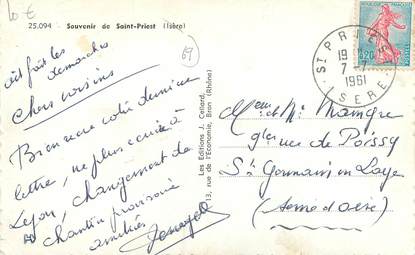 10 €
25.094 Souvenir de Saint-Priest (Isère)
69
ait fait les
démarches
Chers voisins
Bien reçu votre dernière
lettre, ne plus écrire à
Lyon, changement de
chantier
amitiés
Les Editions J. Cellard
13, rue de l'Economie, Bron (Rhône)
REPUBLIQUE FRANCAISE
0,20
POSTES
ST PRIEST
19 H
7 - 
1961
ISERE
Mme et Mr
rue de Poissy
St Germain en Laye
(Seine et Oise)